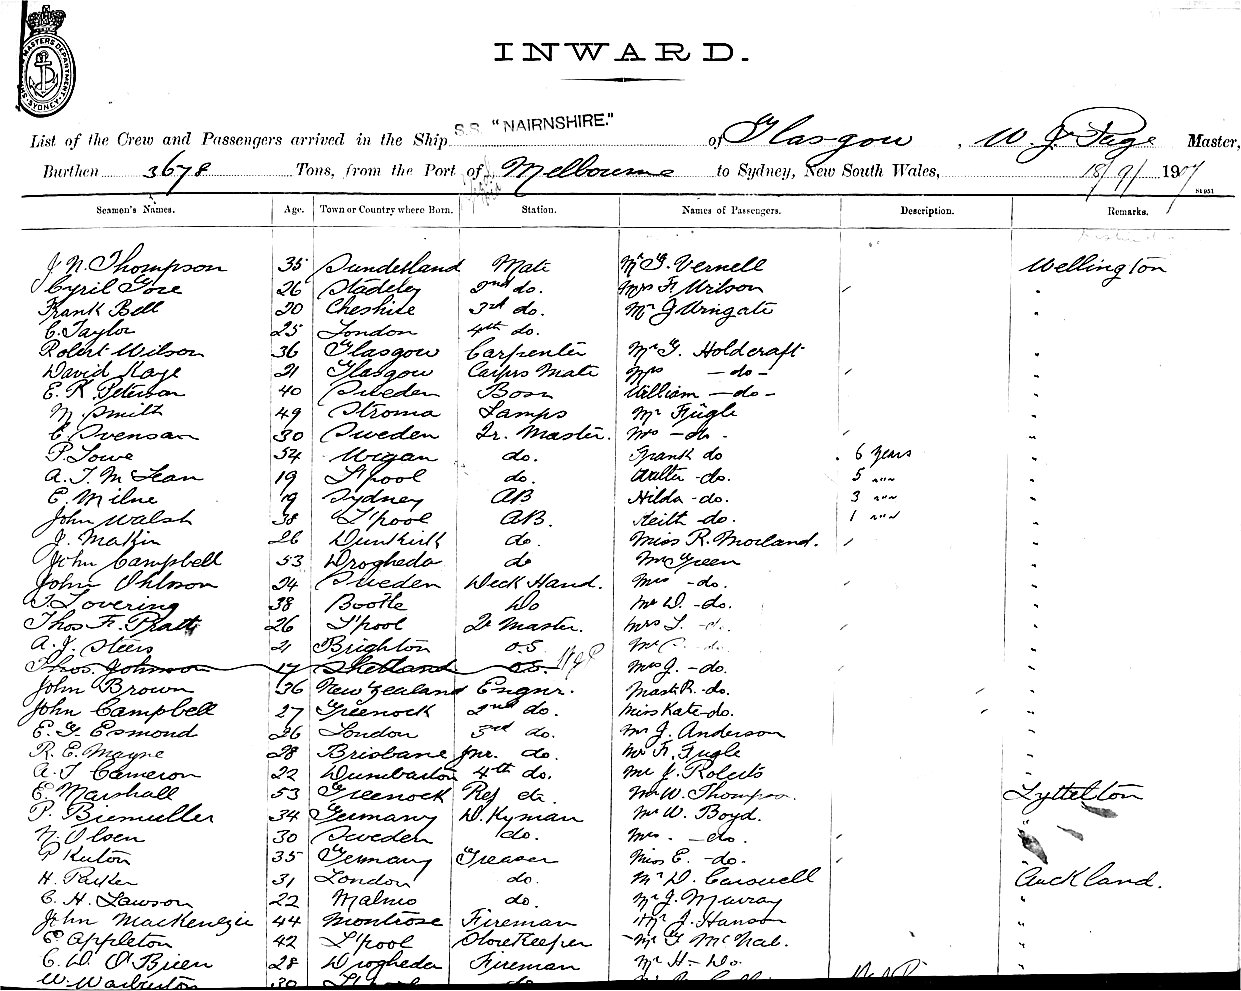 MASTERS DEPARTMENT SYDNEY
INWARD.
List of the Crew and Passengers arrived in the Ship S.S. "NAIRNSHIRE." of Glasgow, W. J. Page Master,
Burthen 3678 Tons, from the Port of Melbourne to Sydney, New South Wales, 18/9/1907
Seamen's Names. Age. Town or Country where Born. Station. Names of Passengers. Description. Remarks.
J. N. Thompson 35 Sunderland Mate Mr G. Vernell Wellington
Cyril Gore 26 Stadeley 2nd do. Mrs F. Wilson "
Frank Bell 20 Cheshire 3rd do. Mr J Wingate "
C. Taylor 25 London 4th do. "
Robert Wilson 36 Glasgow Carpenter Mr G. Holdcraft "
David Kaye 21 Glasgow Carprs Mate Mrs - do - "
E. K. Peterson 40 Sweden Bosn William - do - "
M. Smith 49 Stroma Lamps Mr Fugle "
C. Svensan 30 Sweden Qr. Master. Mrs - do. "
P. Lowe 54 Wigan do. Frank do 6 years "
A. T. McLean 19 L'pool do. Walter - do. 5 " "
E. Milne 19 Sydney AB Hilda - do. 3 " "
John Walsh 38 L'pool AB. Keith - do. 1 " "
J. Makin 26 Dunkirk do. Miss R. Morland. "
John Campbell 53 Drogheda do Mr Green "
John Ohlson 24 Sweden Deck Hand. Mrs - do. "
T. Lovering 38 Bootle Do Mr D. - do. "
Thos F. Pratt 26 L'pool Qr Master. Mrs L. - d. "
A. J. Steers 21 Brighton O.S. Mr - do. "
Thos. Johnson 17 Shetland O.S. Mrs J. - do. "
John Brown 36 New Zealand Engnr. Mast R. - do. "
John Campbell 27 Greenock 2nd do. Miss Kate - do. "
E. G. Esmond 26 London 3rd do. Mr J. Anderson "
R. E. Mayne 28 Brisbane Jnr. do. Mr F. Fugle "
A. T. Cameron 22 Dumbarton 4th do. Mr J. Roberts "
E. Marshall 53 Greenock Ref etc. Mr W. Thompson. Lyttelton
P. Biemuller 34 Germany D. Kyman Mr W. Boyd. "
N. Olsen 30 Sweden do. Mrs. - do. "
P Kuton 35 Germany Greaser Miss E. - do. "
H. Parker 31 London do. Mr D. Carswell Auckland.
C. H. Lawson 22 Malmo do. Mr J. Murray "
John MacKenzie 44 Montrose Fireman Mr J. Hanson "
E. Appleton 42 L'pool Storekeeper Mr G McNab. "
C. W. O'Brien 28 Drogheda Fireman Mr H - Do. "
W. Warburton 39 L'pool do